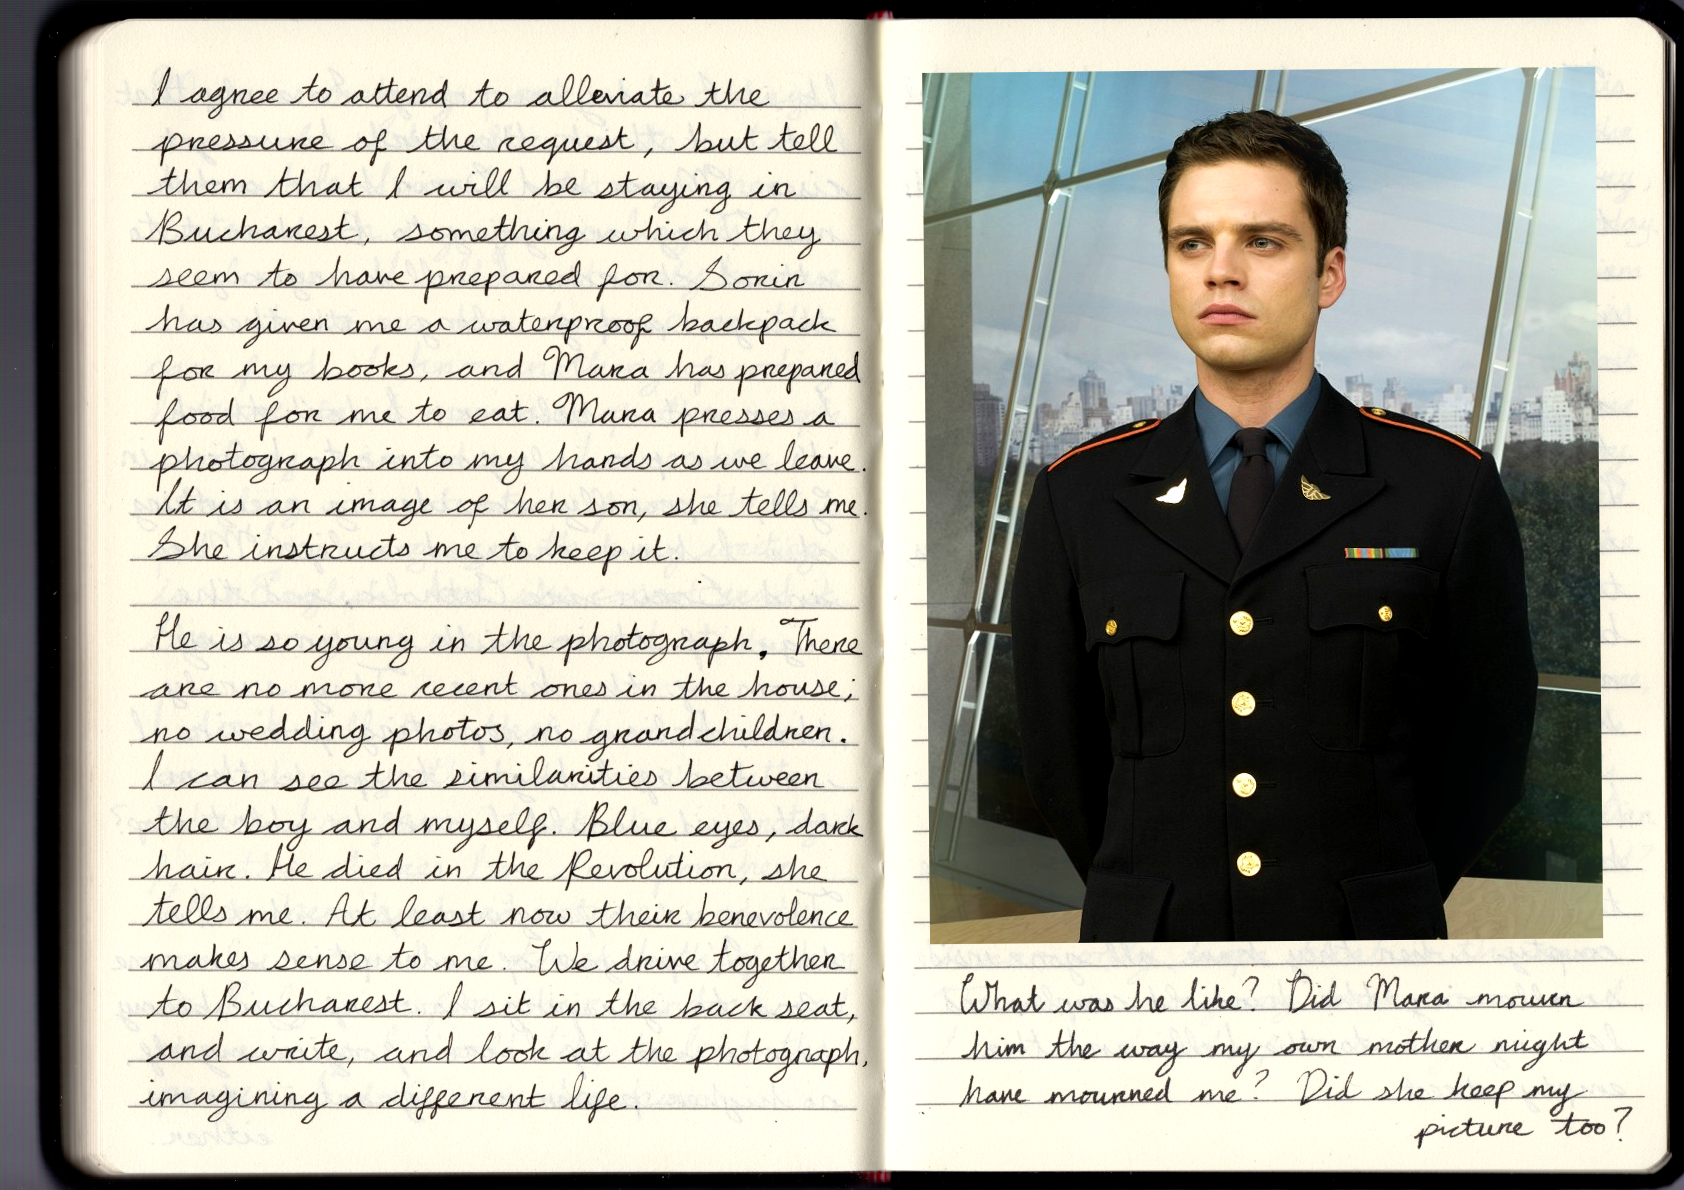 I agree to attend to alleviate the
pressure of the request, but tell
them that I will be staying in
Bucharest, something which they
seem to have prepared for. Sorin
has given me a waterproof backpack
for my books, and Mara has prepared
food for me to eat. Mara presses a
photograph into my hands as we leave.
It is an image of her son, she tells me.
She instructs me to keep it.
He is so young in the photograph. There
are no more recent ones in the house;
no wedding photos, no grandchildren.
I can see the similarities between
the boy and myself. Blue eyes, dark
hair. He died in the Revolution, she
tells me. At least now their benevolence
makes sense to me. We drive together
to Bucharest. I sit in the back seat,
and write, and look at the photograph,
imagining a different life.
What was he like? Did Mara mourn
him the way my own mother might
have mourned me? Did she keep my
picture too?